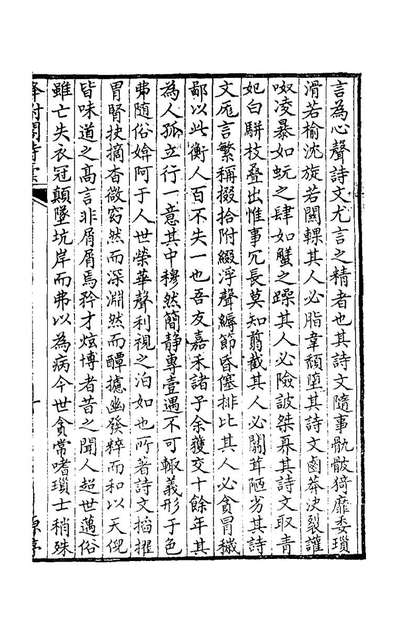 言為心聲詩文尤言之精者也其詩文隨事骫骳猗靡委瑣
滑若榆沈旋若闤輠其人必脂韋頹墮其詩文鹵莽決裂讙
呶凌暴如蚖之肆如蟹之躁其人必險詖桀奡其詩文取青
妃白駢枝疊出惟事冗長莫知翦截其人必闒茸陋劣其詩
文卮言繁稱掇拾附綴浮聲縟節昏僿排比其人必貪冒穢
鄙以此衡人百不失一也吾友嘉禾諸子余獲交十餘年其
為人孤立行一意其中穆然簡靜專壹遇不可輒義形于色
弗隨俗媕阿于人世榮華聲利視之泊如也所著詩文搯擢
胃腎抉摘杳微窈然而深淵然而醰攄幽發粹而和以天倪
皆味道之高言非屑屑焉矜才炫博者昔之聞人超世邁俗
雖亡失衣冠顛墜坑岸而弗以為病今世貪常嗜瑣士稍殊